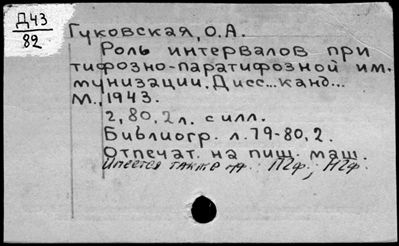 Д43
82
Гуковская, О.А.
Роль интервалов при
тифозно-паратифозной им-
мунизации. Дисс... канд...
М., 1943.
2, 80, 2 л. с илл.
Библиогр. л. 79-80, 2.
Отпечат. на пиш. маш.
Имеется также